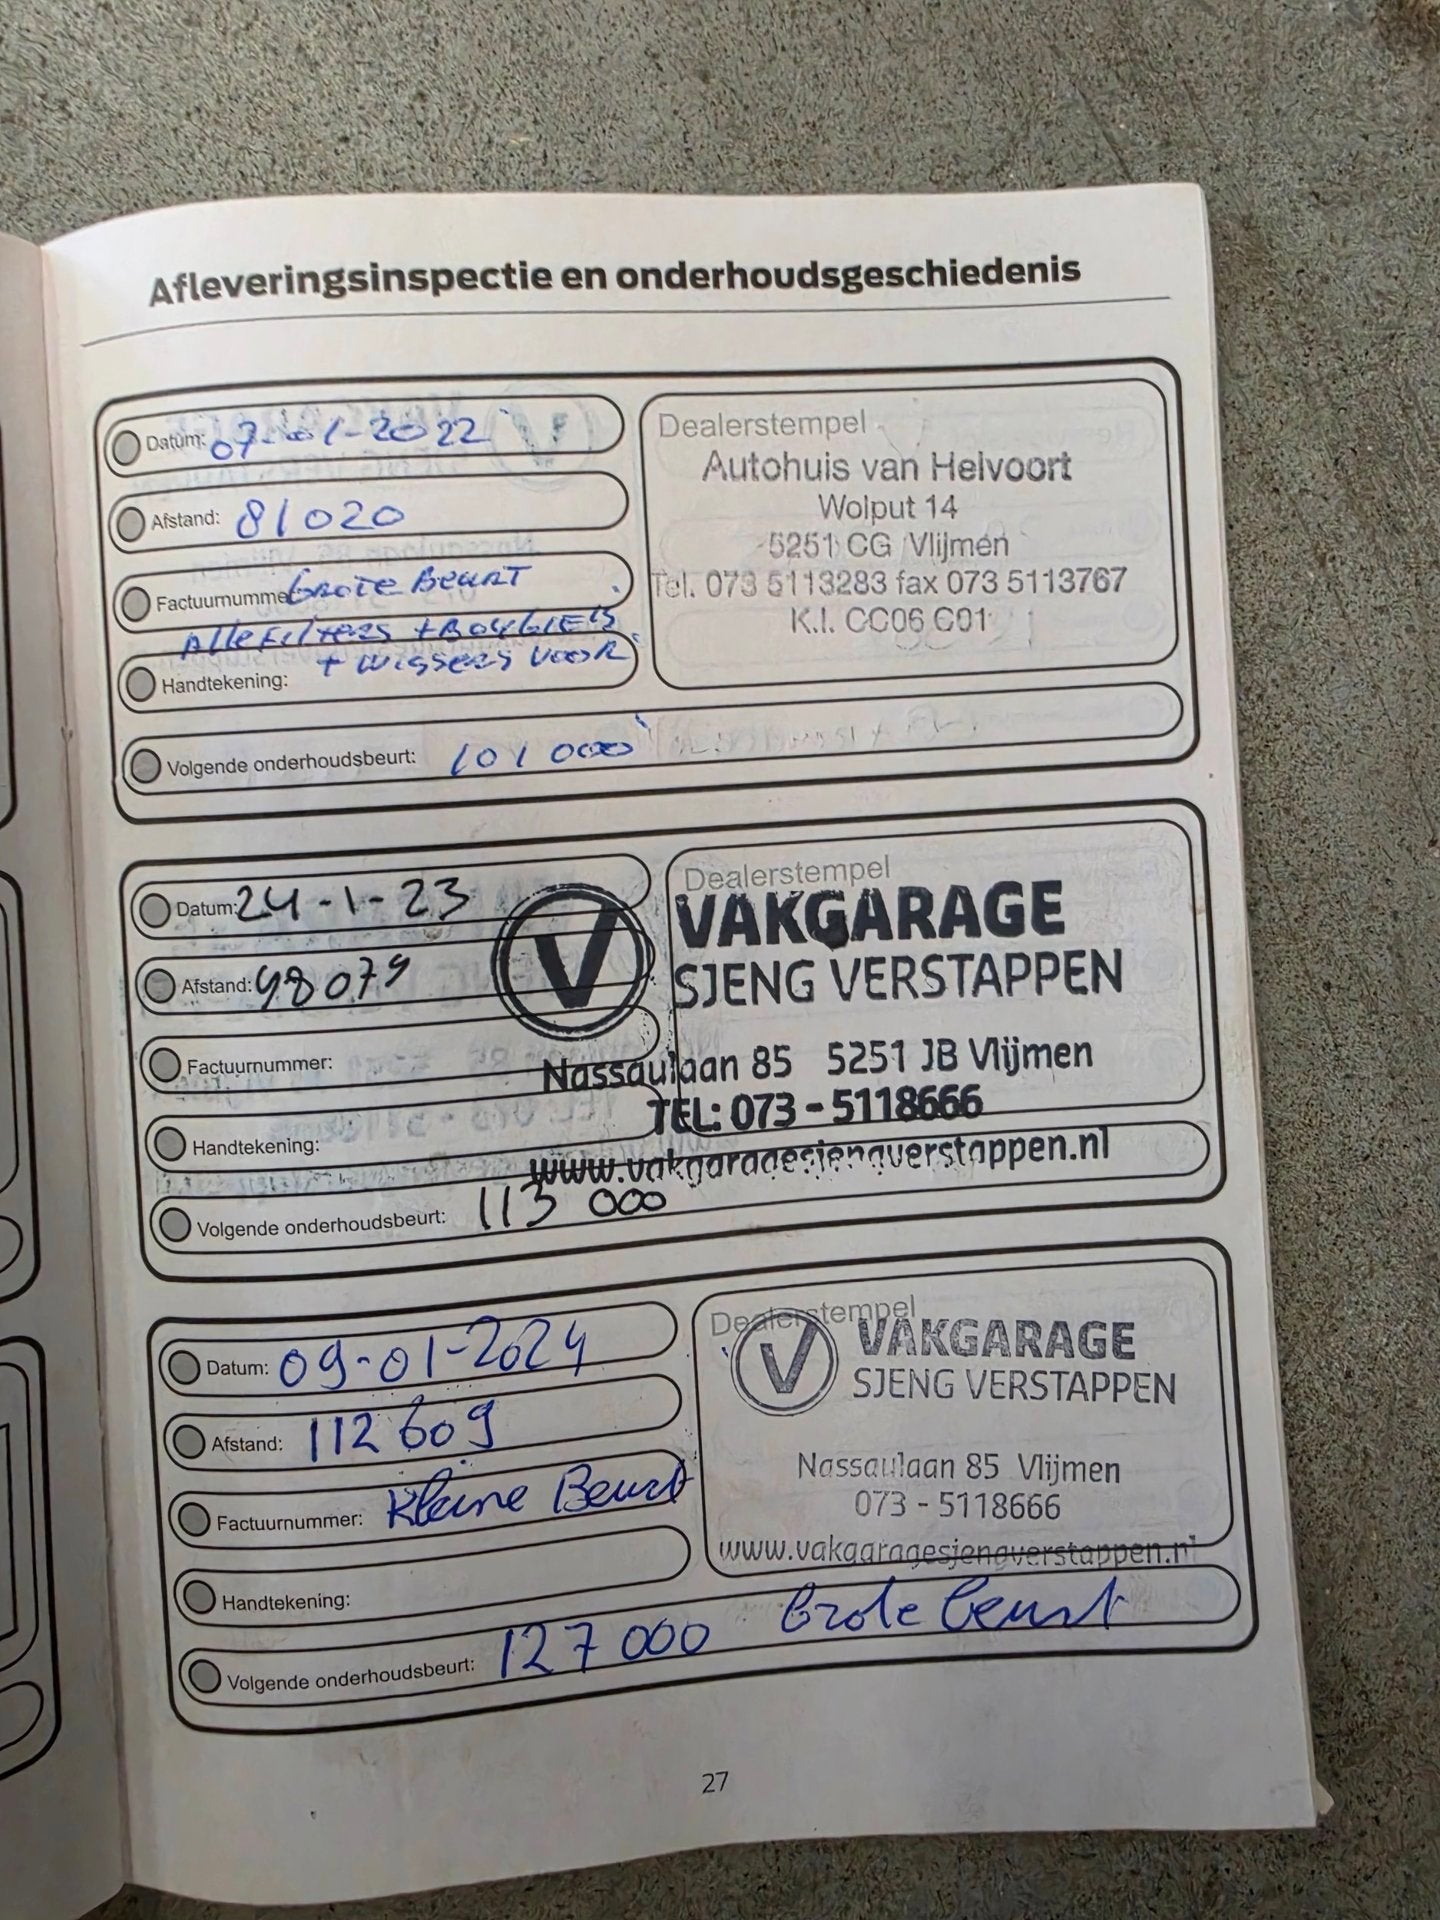 Afleveringsinspectie en onderhoudsgeschiedenis
Datum: 07-01-2022
Afstand: 81020
Factuurnummer Grote Beurt
Alle Filters + Bougie's
+ Wissers voor
Handtekening:
Volgende onderhoudsbeurt: 101 000
Dealerstempel
Autohuis van Helvoort
Wolput 14
5251 CG Vlijmen
Tel. 073 5113283 fax 073 5113767
K.I. CC06 C01
Datum: 24-1-23
Afstand: 98079
Factuurnummer:
Handtekening:
Volgende onderhoudsbeurt: 113 000
Dealerstempel
V VAKGARAGE
SJENG VERSTAPPEN
Nassaulaan 85 5251 JB Vlijmen
TEL: 073 - 5118666
www.vakgaragesjengverstappen.nl
Datum: 09-01-2024
Afstand: 112609
Factuurnummer: Kleine Beurt
Handtekening:
Volgende onderhoudsbeurt: 127 000 Grote beurt
Dealerstempel
V VAKGARAGE
SJENG VERSTAPPEN
Nassaulaan 85 Vlijmen
073 - 5118666
www.vakgaragesjengverstappen.nl
27